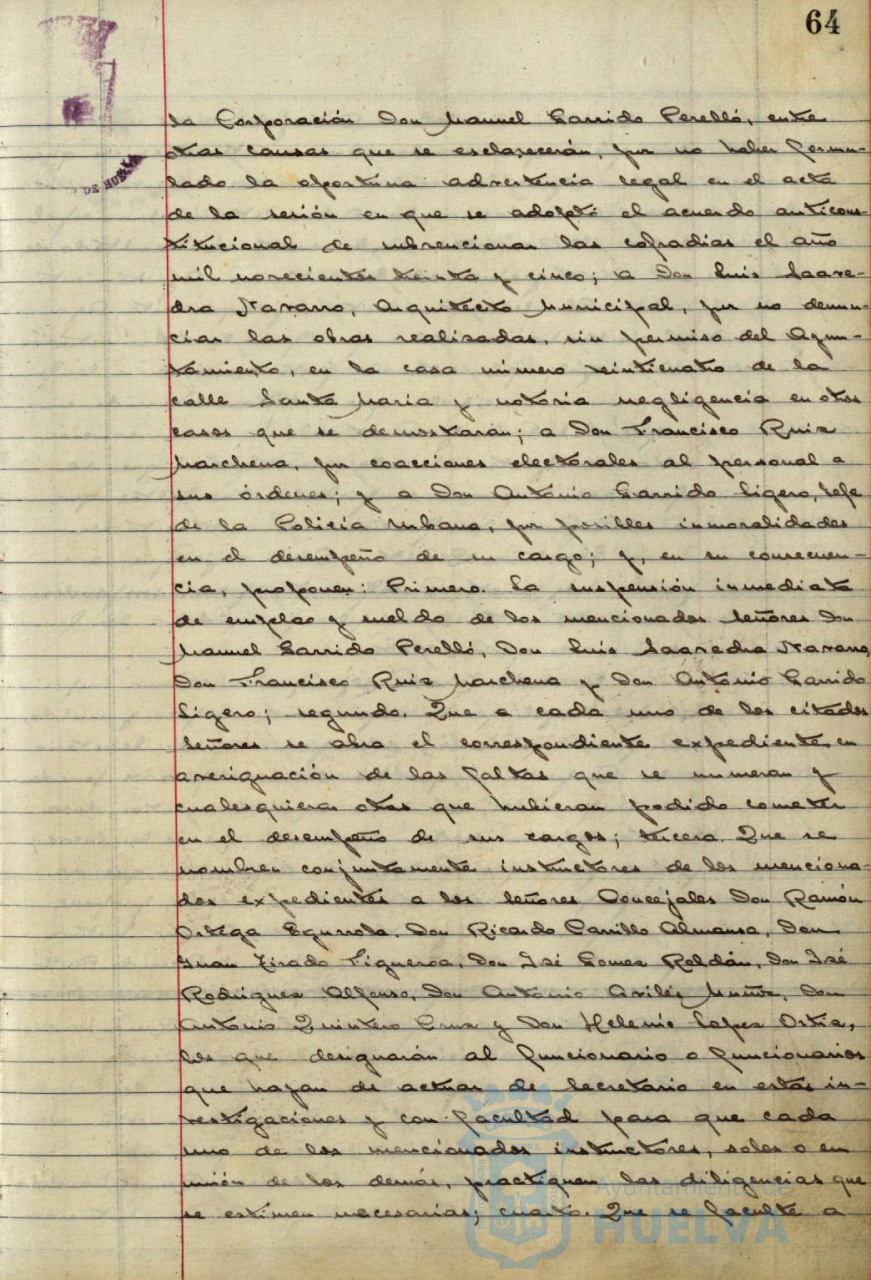 64
DE HUELVA
la Corporación Don Manuel Garrido Perelló, entre
otras causas que se esclarecerán, por no haber formu-
lado la oportuna advertencia legal en el acta
de la sesión en que se adoptó el acuerdo anticons-
titucional de subvencionar las cofradías el año
mil novecientos treinta y cinco; a Don Luis Saave-
dra Navarro, Arquitecto Municipal, por no denun-
ciar las obras realizadas, sin permiso del Ayun-
tamiento, en la casa número veinticuatro de la
calle Santa María y notoria negligencia en otros
casos que se demostrarán; a Don Francisco Ruiz
Marchena, por coacciones electorales al personal a
sus órdenes; y a Don Antonio Garrido Ligero, Jefe
de la Policía Urbana, por posibles inmoralidades
en el desempeño de su cargo; y, en su consecuen-
cia, proponen: Primero. La suspensión inmediata
de empleo y sueldo de los mencionados señores Don
Manuel Garrido Perelló, Don Luis Saavedra Navarro,
Don Francisco Ruiz Marchena y Don Antonio Garrido
Ligero; segundo. Que a cada uno de los citados
señores se abra el correspondiente expediente en
averiguación de las faltas que se numeran y
cualesquiera otras que hubieran podido cometer
en el desempeño de sus cargos; tercera. Que se
nombren conjuntamente instructores de los menciona-
dos expedientes a los señores Concejales Don Ramón
Ortega Egurrola, Don Ricardo Carrillo Almansa, Don
Juan Tirado Figueroa, Don José Gomez Roldán, Don José
Rodríguez Alfonso, Don Antonio Avilés Muñoz, Don
Antonio Quintero Cruz y Don Helenio Lopez Ortiz,
los que designarán al funcionario o funcionarios
que hayan de actuar de Secretario en estas in-
vestigaciones y con facultad para que cada
uno de los mencionados instructores, solos o en
unión de los demás, practiquen las diligencias que
se estimen necesarias; cuarto. Que se faculte a
Ayuntamiento de
HUELVA